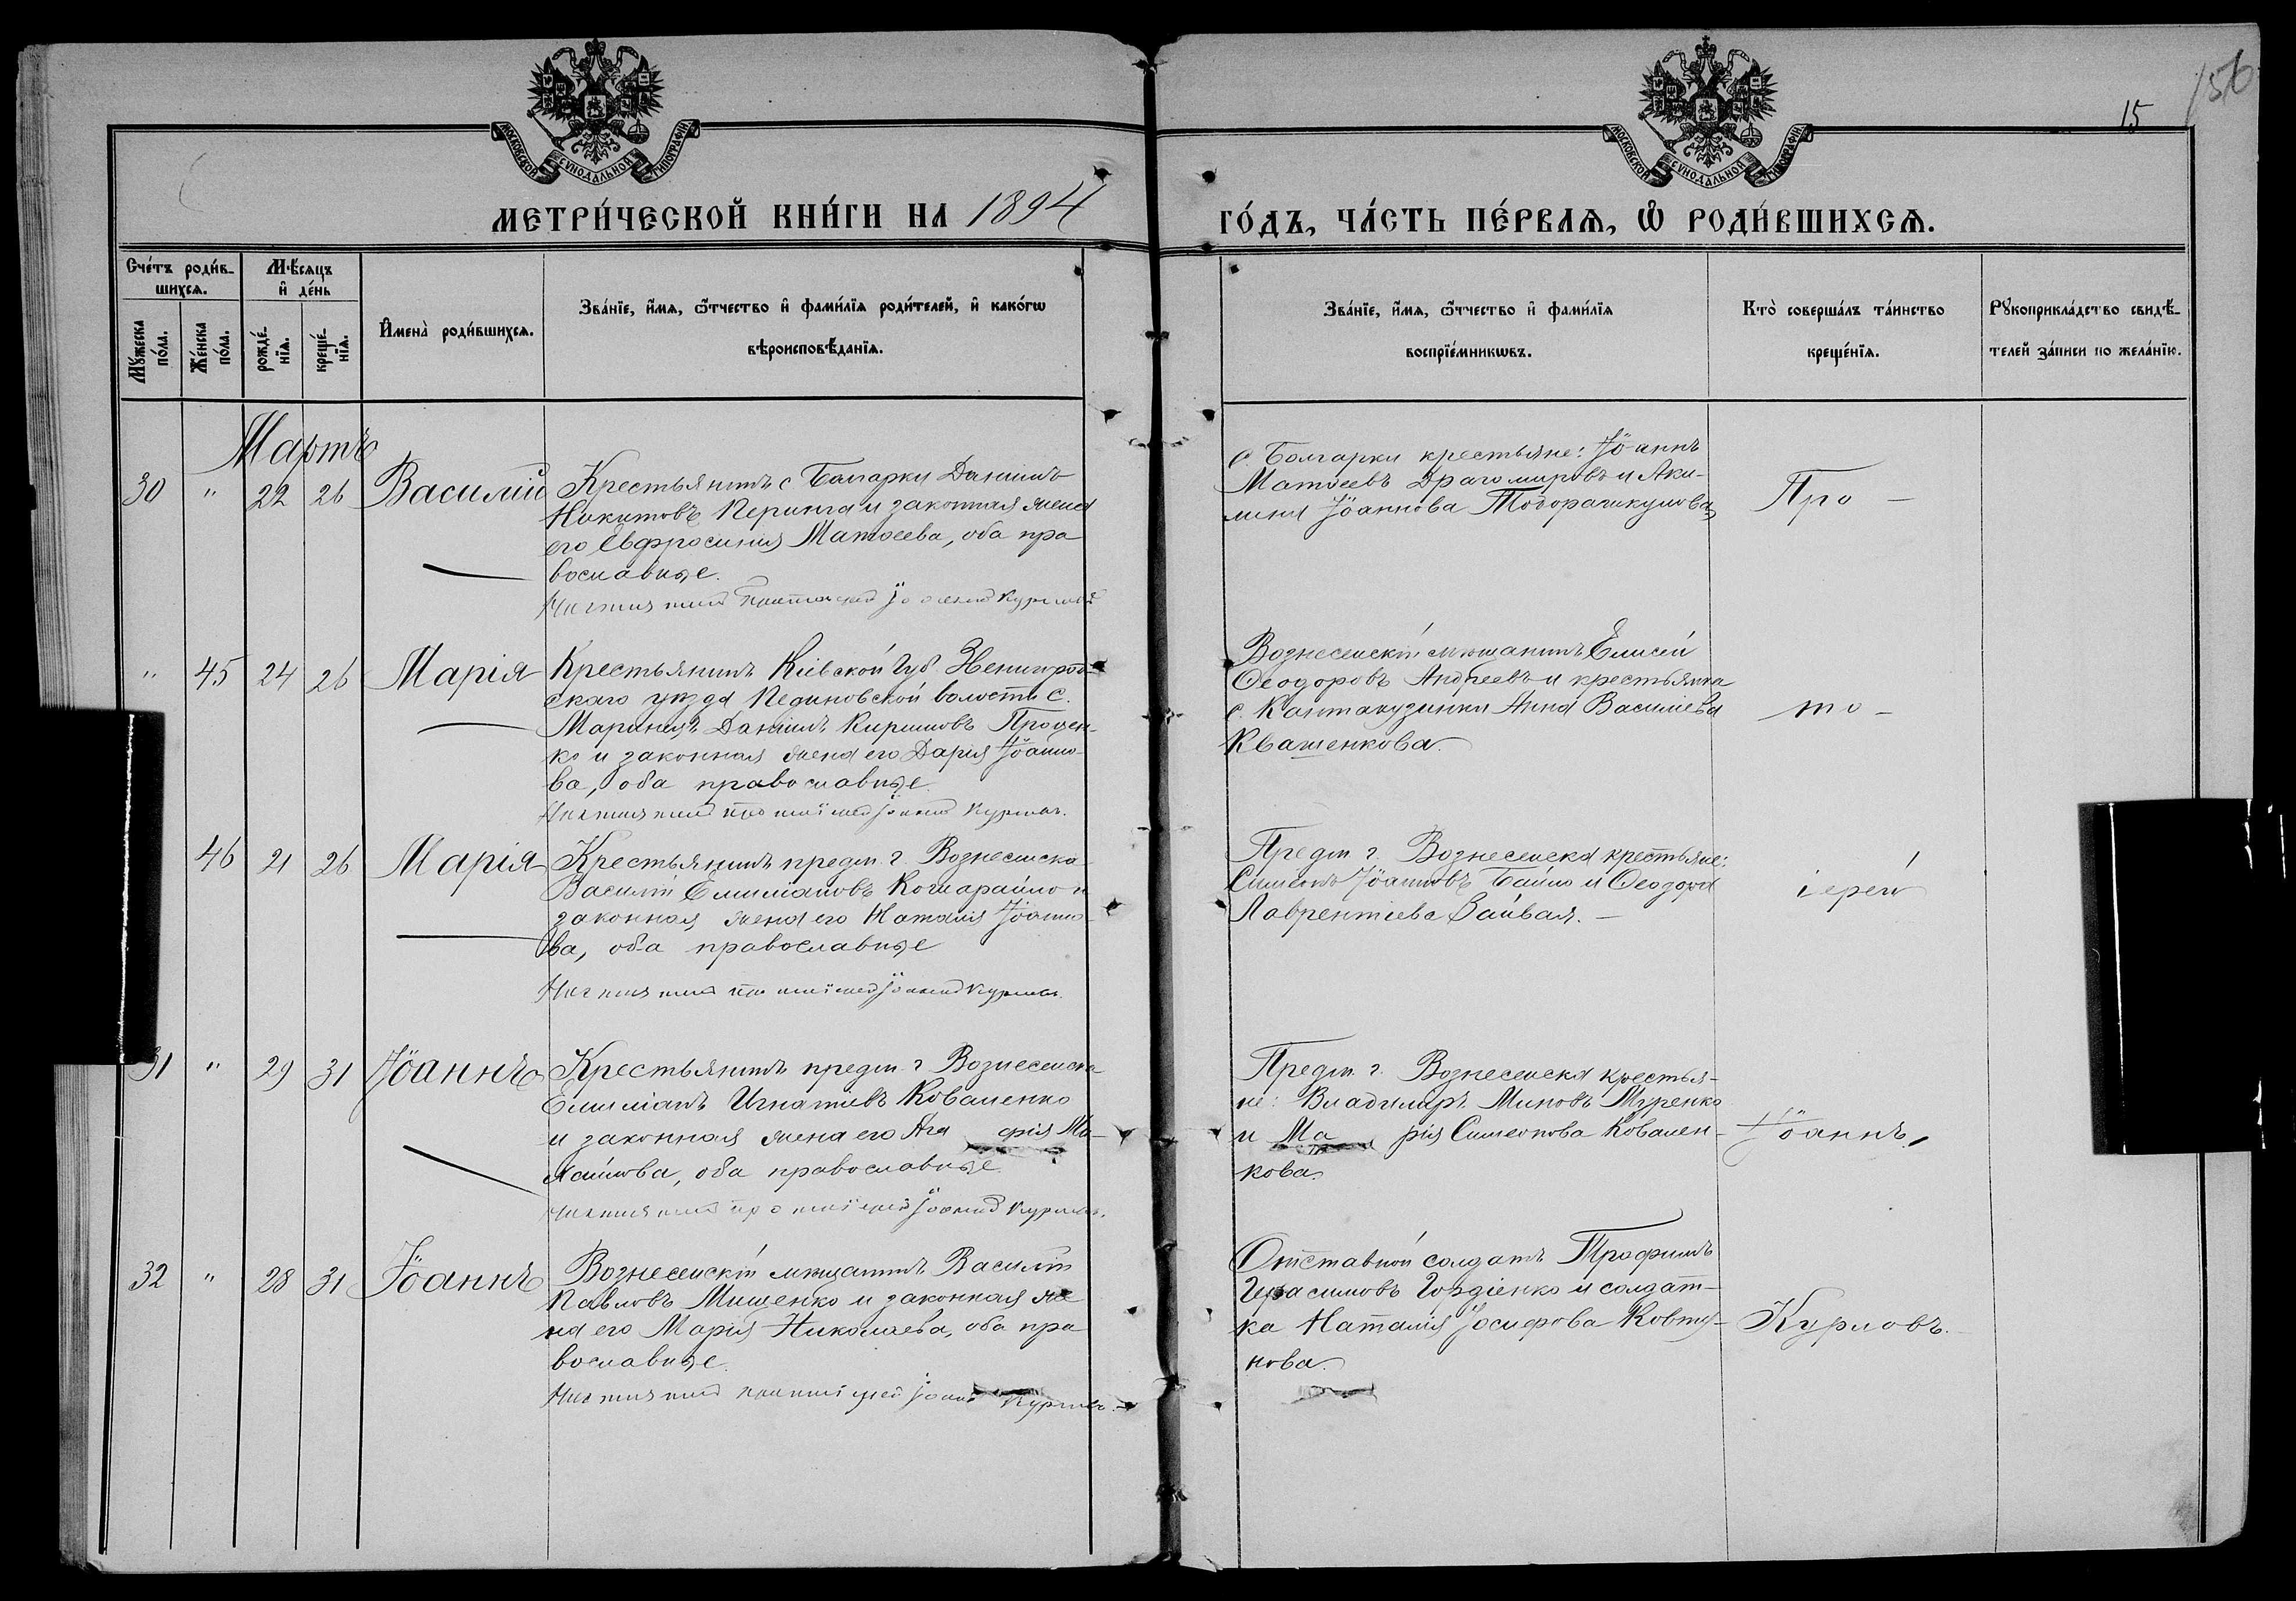 156
15
МОСКОВСКОЙ СѴНОДАЛЬНОЙ ТИПОГРАФІИ
МОСКОВСКОЙ СѴНОДАЛЬНОЙ ТИПОГРАФІИ
МЕТРИ́ЧЕСКОЙ КНИ́ГИ НА 1894
ГО́ДЪ, ЧА́СТЬ ПЕ́РВАѦ, Ѡ҆ РОДИ́ВШИХСѦ.
Сче́тъ роди́в-
шихсѧ.
Мѣ́сѧцъ
и҆ де́нь
Мꙋ́жеска
по́ла.
Же́нска
по́ла.
рожде́-
нїѧ.
креще́-
нїѧ.
И҆мена̀ роди́вшихсѧ.
Зва́нїе, и҆́мѧ, ѻ҆́тчество и҆ фами́лїѧ роди́телей, и҆ како́гѡ
вѣроисповѣ́данїѧ.
Зва́нїе, и҆́мѧ, ѻ҆́тчество и҆ фами́лїѧ
воспрїе́мникѡвъ.
Кто̀ соверша́лъ та́инство
креще́нїѧ.
Рꙋкоприкла́дство свидѣ́-
телей за́писи по жела́нїю.
Мартъ
30 " 22 26 Василій
Крестьянинъ с Болгарки Даніилъ
Никитовъ Перинга и законная жена
его Евфросинія Матѳеева, оба пра
вославные.
Іоаннъ Курловъ
с. Болгарки крестьяне: Іоаннъ
Матѳеевъ Драгомировъ и Аки-
лина Іоаннова
Про-
" 45 24 26 Марія
Крестьянинъ Кіевской губ Звенигород-
скаго уѣзда Пединовской волости с.
Даніилъ Кириловъ Процен-
ко и законная жена его Дарія Іоанно-
ва, оба православные.
Іоаннъ Курловъ.
Вознесенскій мѣщанинъ Елисей
Ѳеодоровъ Андреевъ и крестьянка
с. Кантакузинки Анна Василіева
Квашенкова.
то-
46 21 26 Марія
Крестьянинъ предм. г. Вознесенска
Василій Емиліановъ и
законная жена его Наталія Іоанно-
ва, оба православные
Іоаннъ Курловъ.
Предм г. Вознесенска крестьяне:
Симеонъ Іоанновъ Байло и Ѳеодора
Лаврентіева
іерей
31 " 29 31 Іоаннъ
Крестьянинъ предм. г Вознесенска
Емиліанъ Игнатіевъ Коваленко
и законная жена его Ага фія Ми-
хаилова, оба православные.
Іоаннъ Курловъ.
Предм. г. Вознесенска крестья-
не: Владиміръ Миновъ Муренко
и Ма рія Симеонова Ковален-
кова.
Іоаннъ
32 " 28 31 Іоаннъ
Вознесенскій мѣщанинъ Василій
Павловъ Мищенко и законная же
на его Марія Николаева, оба пра
вославные.
Іоаннъ Курловъ.
Отставной солдатъ Трофимъ
Герасимовъ Гордіенко и солдат-
ка Наталія Іосифова Ковту-
нова.
Курловъ.